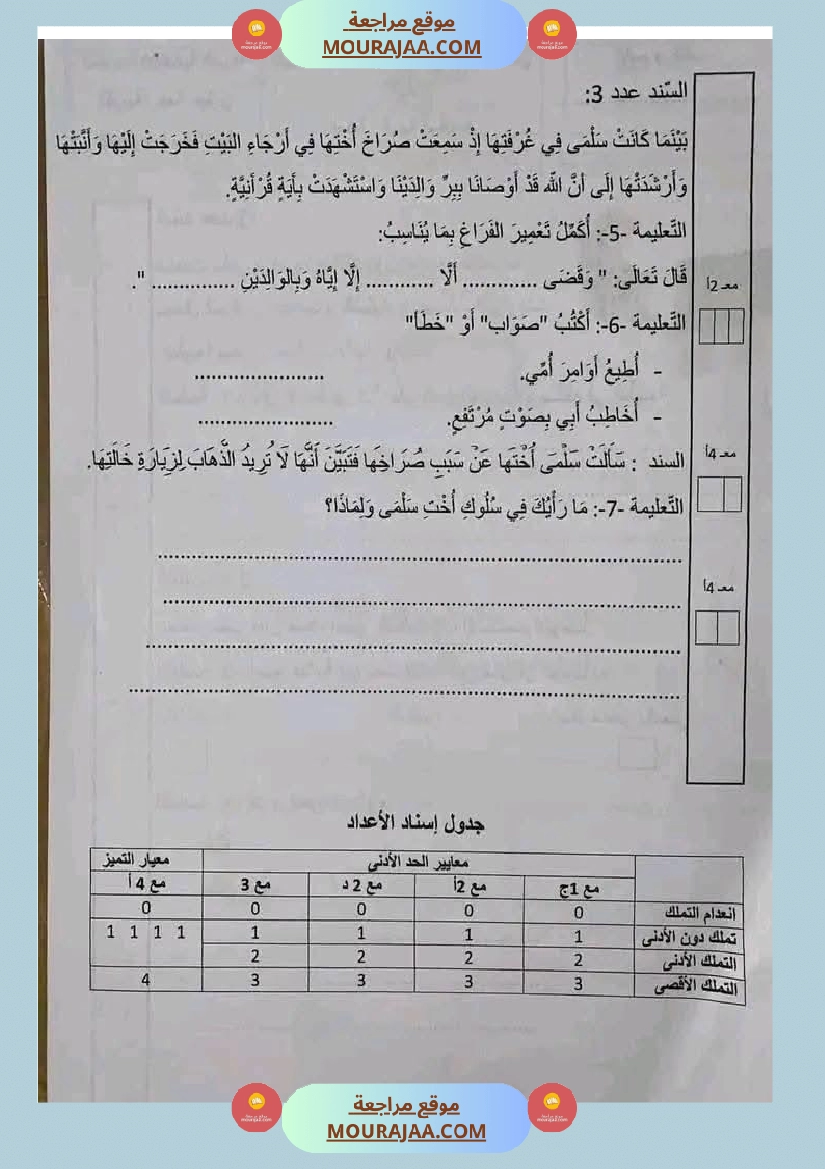 موقع مراجعة
MOURAJAA.COM
السّند عدد 3:
بَيْنَمَا كَانَتْ سَلْمَى فِي غُرْفَتِهَا إِذْ سَمِعَتْ صُرَاخَ أُخْتِهَا فِي أَرْجَاءِ البَيْتِ فَخَرَجَتْ إِلَيْهَا وَأَنَّبَتْهَا
وَأَرْشَدَتْهَا إِلَى أنَّ الله قَدْ أَوْصَانَا بِبِرِّ وَالِدَيْنَا وَاسْتَشْهَدَتْ بِأَيَةٍ قُرْآنِيَّةٍ.
التّعليمة -5-: أُكَمِّلُ تَعْمِيرَ الْفَرَاغِ بِمَا يُنَاسِبُ:
مع2أ
قَالَ تَعَالَى: " وَقَضَى ............. أَلَّا ............ إِلَّا إِيَّاهُ وَبِالوَالِدَيْنِ .............. ".
التّعليمة -6-: أَكْتُبُ "صَوَاب" أَوْ "خَطَأ"
- أُطِيعُ أَوَامِرَ أُمِّي. .......................
- أُخَاطِبُ أَبِي بِصَوْتٍ مُرْتَفِعٍ. ........................
مع4أ
السند : سَأَلَتْ سَلْمَى أُخْتَها عَنْ سَبَبِ صُرَاخِهَا فَتَبَيَّنَ أَنَّهَا لَا تُرِيدُ الذَّهَابَ لِزِيَارَةِ خَالَتِهَا.
التّعليمة -7-: مَا رَأْيُكَ فِي سُلُوكِ أُخْتِ سَلْمَى وَلِمَاذَا؟
مع4أ
جدول إسناد الأعداد
معايير الحد الأدنى معيار التميز
مع 1ج مع 2أ مع 2 د مع 3 مع 4 أ
انعدام التملك 0 0 0 0 0
تملك دون الأدنى 1 1 1 1 1 1 1 1
التملك الأدنى 2 2 2 2
التملك الأقصى 3 3 3 3 4
موقع مراجعة
MOURAJAA.COM